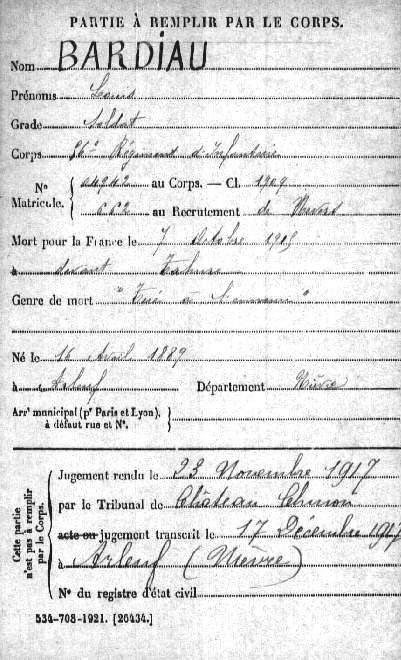 PARTIE À REMPLIR PAR LE CORPS.
Nom BARDIAU
Prénoms Louis
Grade Soldat
Corps 56e Régiment d'Infanterie
N° Matricule. { 04942 au Corps. — Cl. 1909
662 au Recrutement de Nevers
Mort pour la France le 7 Octobre 1915
à devant Tahure
Genre de mort "Tué à l'ennemi"
Né le 16 Avril 1889
à Arleuf Département Nièvre
Arrt municipal (pr Paris et Lyon), à défaut rue et N°. }
Cette partie n'est pas à remplir par le Corps.
Jugement rendu le 23 Novembre 1917
par le Tribunal de Château Chinon
acte ou jugement transcrit le 17 Décembre 1917
à Arleuf (Nièvre)
N° du registre d'état civil
534-708-1921. [26434.]